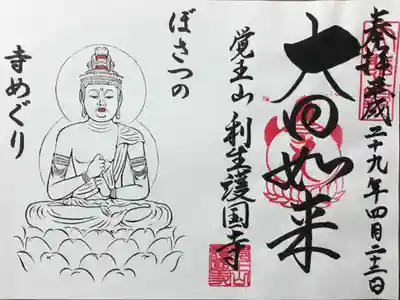 奉拝 平成二十九年四月二十三日
大日如来
覚王山 利生護国寺
ぼさつの
寺めぐり